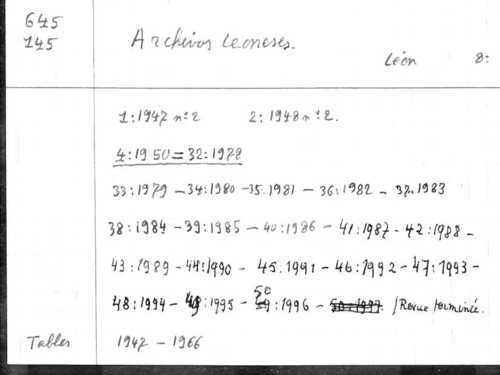 645
145
Archivos Leoneses.
Léon 8:
1:1947 n°2 2:1948 n°2.
4:1950=32:1978
33:1979 - 34:1980 - 35:1981 - 36:1982 - 37:1983
38:1984 - 39:1985 - 40:1986 - 41:1987 - 42:1988 -
43:1989 - 44:1990 - 45:1991 - 46:1992 - 47:1993 -
48:1994 - 49:1995 - 50:1996 - /Revue terminée.
Tables 1947 - 1966